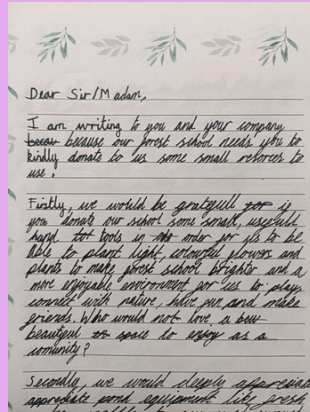 Dear Sir/Madam,
I am writing to you and your company
because our forest school needs you to
kindly donate to us some small resorces to
use.
Firstly, we would be gratefull if
you donate our school some small, usefull
hand tools in order for us to be
able to plant light, colourful flowers and
plants to make forest school brighter and a
more enjoyable environment for us to play,
connect with nature, have fun and make
friends. Who would not love, a
beautiful space to enjoy as a
comunity?
Secondly, we would deeply appreciate
pond equipment like fresh